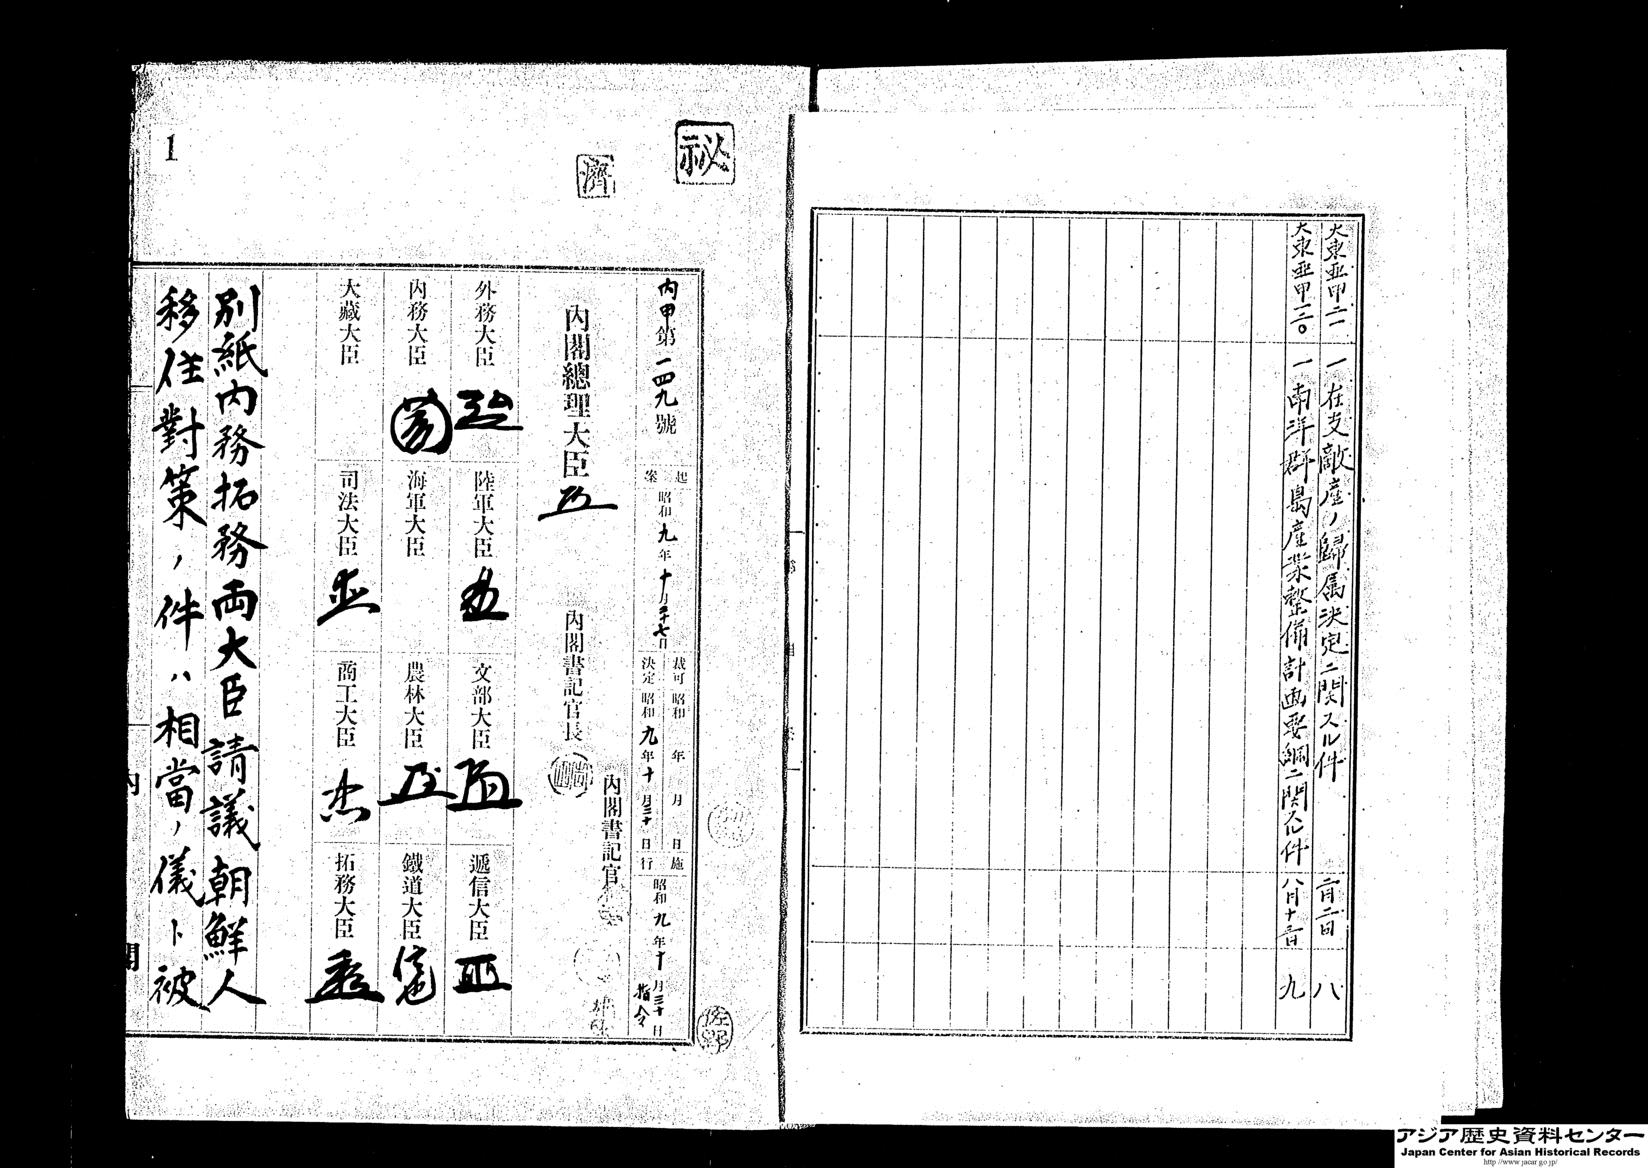 大東亜甲二一 一在支敵産ノ帰属決定ニ関スル件 二月二日 八
一南洋群島産業整備計画要綱ニ関スル件 九
秘
濟
1
内甲第一四九號
起案 昭和九年十月二十七日
裁可 昭和 年 月 日
決定 昭和九年十月三十日
施行 昭和九年十月三十日
指令
內閣總理大臣
內閣書記官長
內閣書記官
外務大臣
陸軍大臣
文部大臣
遞信大臣
內務大臣
海軍大臣
農林大臣
鐵道大臣
大藏大臣
司法大臣
商工大臣
拓務大臣
別紙内務拓務両大臣請議朝鮮人
移住對策ノ件ハ相當ノ儀ト被
內
閣
アジア歴史資料センター
Japan Center for Asian Historical Records
http://www.jacar.go.jp/